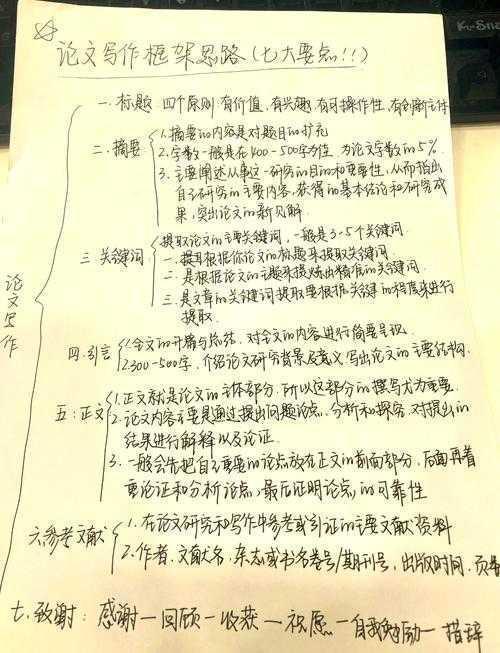 论文写作框架思路(七大要点!!!)
论文写作
一.标题 四个原则:有价值,有兴趣,有可操作性,有创新主体
二.摘要
1.摘要的内容是对题目的扩充
2.字数一般是在400-500字为佳,为论文字数的5%.
3.主要阐述从事这一研究的目的和重要性,从而指出
自己研究的主要内容,获得的基本结论和研究成
果,突出论文的新见解.
三.关键词
提取论文的主要关键词,一般是3-5个关键词.
一.提取根据你论文的标题来提取关键词
二.是根据论文的主题来提炼出精准的关键词.
三.是文章的关键词提取要根据关键的程度来进行
提取.
四.引言
1.全文的开篇与总结,对全文的内容进行简要呈现.
2.300-500字,介绍论文研究背景及意义,写出论文的主要结构.
五:正文
1.正文就是论文的主体部分,所以这部分的撰写尤为重要.
2.论文内容主要是通过提出问题论点,分析和探究,对提出的
结果进行解释以及论证.
3.一般会先把自己主要的论点放在正文的前面部分,后面再着
重论证和分析论点,最后证明论点的可靠性
六.参考文献
1.在论文研究和写作中参考或引证的主要文献资料
2.作者、文献名、杂志或书名卷号/期刊号,出版时间、页
七.致谢:感谢一回顾一收获一祝愿一自我勉励一措辞